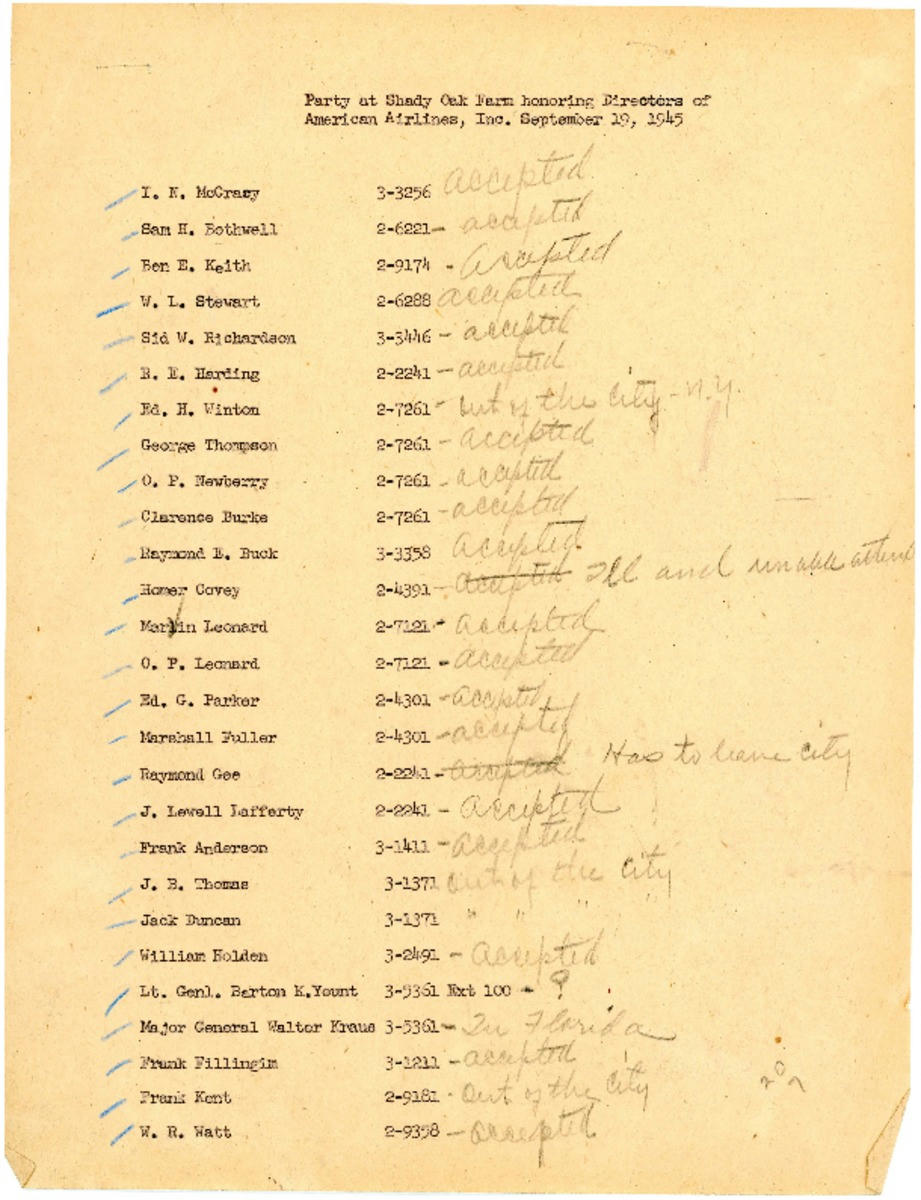 Party at Shady Oak Farm honoring Directors of
American Airlines, Inc. September 19, 1945
I. N. McCrary 3-3256 Accepted
Sam H. Bothwell 2-6221- accepted
Ben E. Keith 2-9174 - Accepted
W. L. Stewart 2-6288 accepted
Sid W. Richardson 3-3446 - accepted
R. E. Harding 2-2241 - accepted
Ed. H. Winton 2-7261 - Out of the city - N.Y.
George Thompson 2-7261 - Accepted
O. P. Newberry 2-7261 - accepted
Clarence Burke 2-7261 - accepted
Raymond E. Buck 3-3358 Accepted
Homer Covey 2-4391 - Accepted Ill and unable attend
Marvin Leonard 2-7121 - Accepted
O. P. Leonard 2-7121 - Accepted
Ed. G. Parker 2-4301 - Accepted
Marshall Fuller 2-4301 - accepted
Raymond Gee 2-2241 - Accepted Has to leave city
J. Lewell Lafferty 2-2241 - Accepted
Frank Anderson 3-1411 - Accepted
J. B. Thomas 3-1371 Out of the city
Jack Duncan 3-1371 " " " "
William Holden 3-2491 - Accepted
Lt. Genl. Barton K.Yount 3-5361 Ext 100 - ?
Major General Walter Kraus 3-5361 - In Florida
Frank Fillingim 3-1211 - accepted
Frank Kent 2-9181 - Out of the city
W. R. Watt 2-9358 - accepted